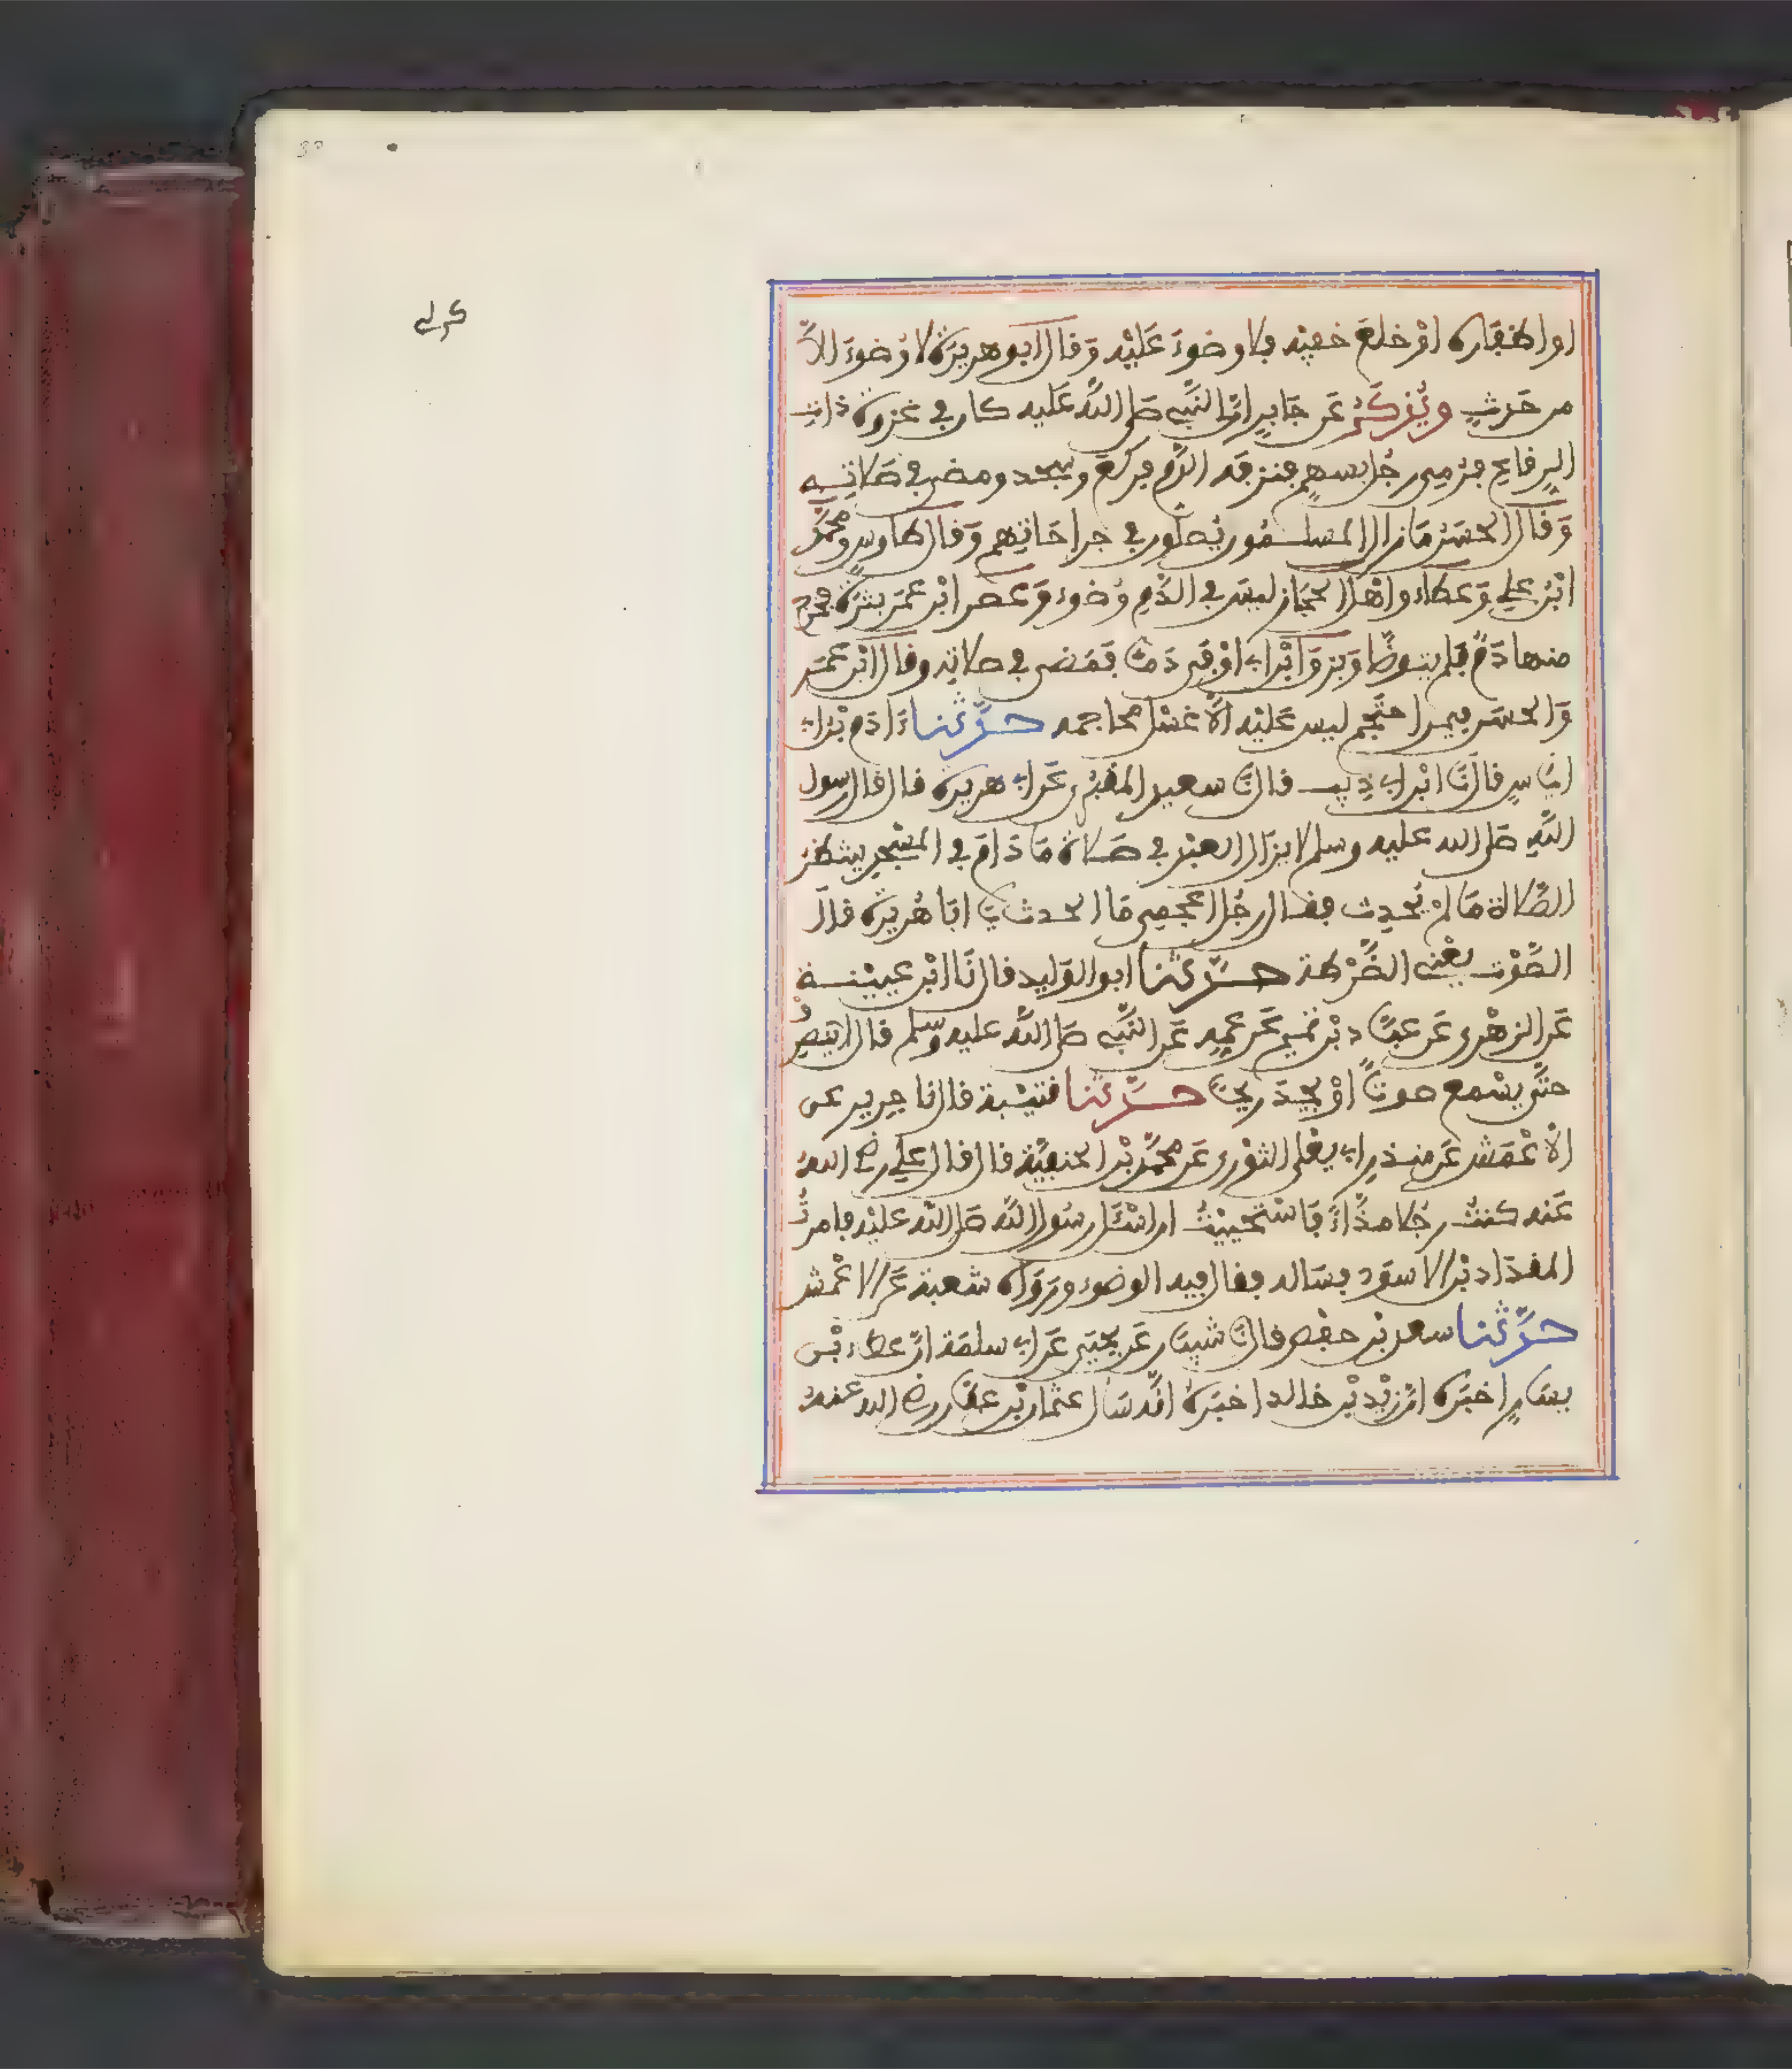 او اظفاره اوْ خلعَ خفيْه فلا وضوءَ عَليْه وَقال ابو هريرَة لا وُضوءَ الاَّ
من حَدَثٍ ويُذكَرُ عَن جَابِرٍ انَّ النَّبِي صَلى اللَّه عَليه كان في غزوة ذات
الرِقاعِ فرُمِي رجُل بسهمٍ فنزفَه الدَّم فركعَ وسجد ومضى في صَلاتِه
وَقال الحسَن مَا زال المسلمُون يُصلُّون في جراحَاتِهم وَقال طاوس ومحمَّد
ابْنُ علي وَعطاء واهْل الحجَاز ليسَ في الدَّمِ وُضوء وَعصر ابْن عمَر بثرَة فخرج
منها دَمٌ فلم يتوضَّا وَبزَق ابْن ابي اوْفى دَمًا فمَضى في صلاتِه وقال ابْن عمَر
وَالحسَن فيمن احتَجم ليس عَليْه الاَّ غسْل محاجمه حدَّثنا ءَادَم بْن ابي
اياسٍ قال نَا ابْن ابي ذِيب قال نا سعيد المقبُري عَن ابي هريرة قال قال رسول
اللَّهِ صَلى الله عليه وسلم لا يزَال العبْد في صَلاة مَا دَامَ في المسْجِد ينتظر
الصَّلاة مَا لمْ يُحدِث فقال رجُل اعجمِي مَا الحدث يَا ابَا هُريرَة قالَ
الصَّوْت يعْني الضَّرْطة حدَّثنا ابو الوَليد قال نَا ابْن عيينَة
عَن الزهْري عَن عبَّاد بْن تميم عَن عمِه عَن النَّبِي صَلى اللَّه عليه وسلم قال لا ينصرفُ
حتَّى يسْمع صوتًا اوْ يجِدَ ريحًا حدَّثنا قتيْبة قال نا جرير عن
الاْعْمَش عَن منذر ابي يعْلى الثوْري عَن محمَّد بْن الحنفيَّة قال قال علي رضي الله
عَنه كنتُ رجُلا مذَّاءً فَاسْتحيَيْتُ ان اسْئَل رسُول اللَّه صَلى اللَّه عليْه فامرتُ
المقدَادَ بْن الاسوَد فسَاله فقال فِيه الوضوء وَرَوَاه شعبة عَن الاعْمش
حدَّثنا سعد بْن حفْص قال نا شيبَان عَن يحيَى عَن ابي سلمَة انَّ عطاء بْن
يسَارٍ اخبرَه انَّ زيْد بْن خالد اخبَرَه انَّه سَال عثمان بْن عفَّان رضي الله عنه